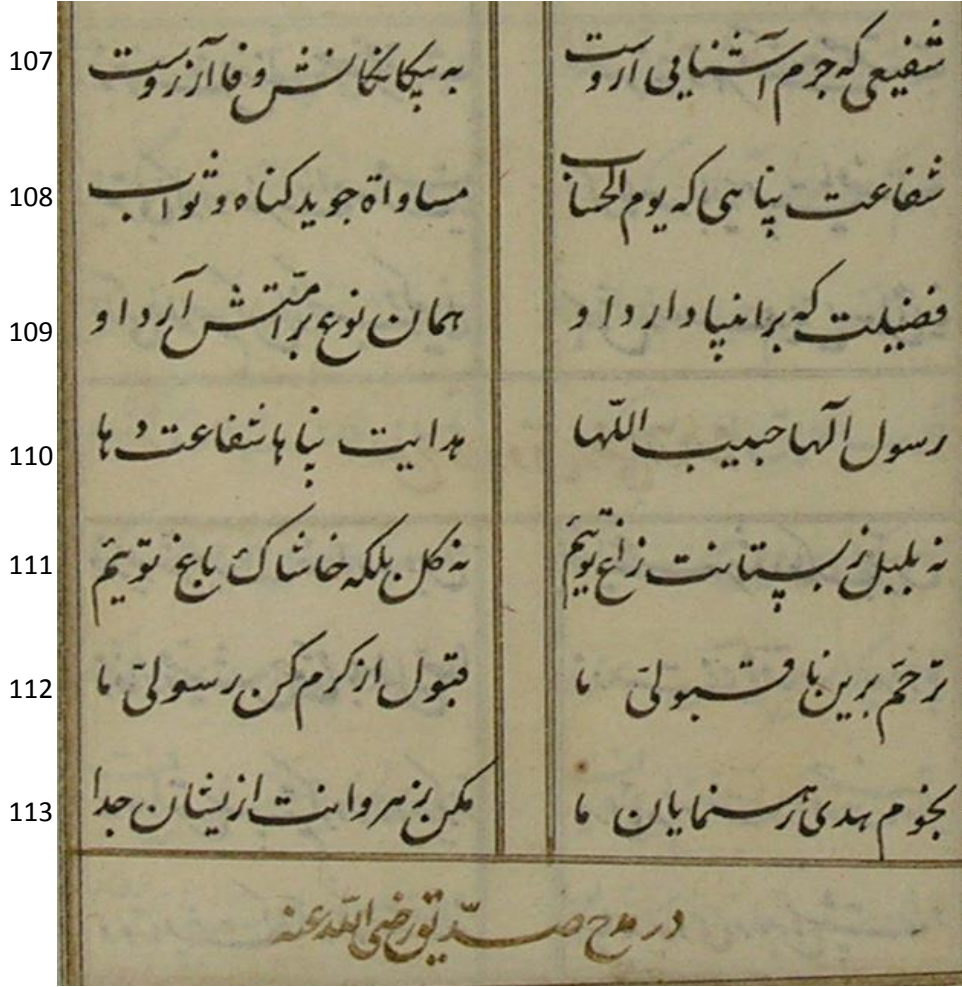 107 شفیعی که جرم آشنایی اروست به بیگانگانش وفا آرزوست
108 شفاعت پناهی که یوم الحساب مساواة جوید کناه و ثواب
109 فضیلت که بر انبیا دارد او همان نوع بر امّتش آرد او
110 رسول الٓها حبیب اللّها هدایت پناها شفاعت دها
111 نه بلبل ز بستانت زاغ توییم نه کل بلکه خاشاک باغ توییم
112 ترحّم برین نا قبولیّ ما قبول از کرم کن رسولیّ ما
113 نجوم هدی رهنمایان ما مکن رهروانت ازیشان جدا
در مدح صدّیق رضی الله عنه